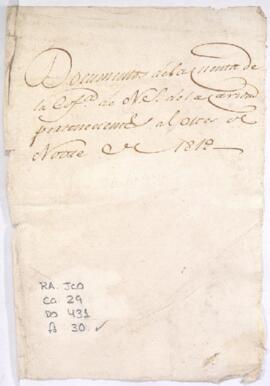 Documentos de la Cuenta de
la Cof.ª de N. S. de la Caridad
pertenecientes al Mes de
Nobre de 1812
RA. JCO
Ca. 29
Do 431
fs 30